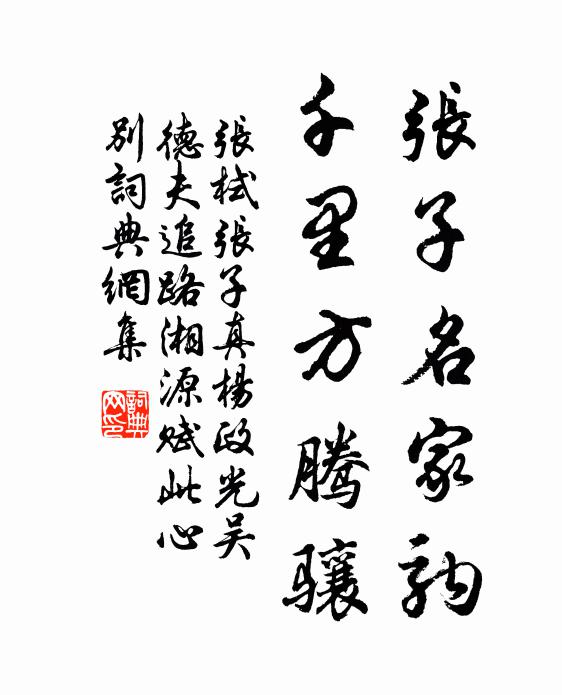 張子名家駒
千里方騰驤
張栻張子真楊政光吳
德夫追路湘源賦此以
別詞典網集
詞典网印